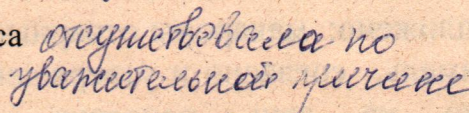 са отсушствовала по
уважительной причине